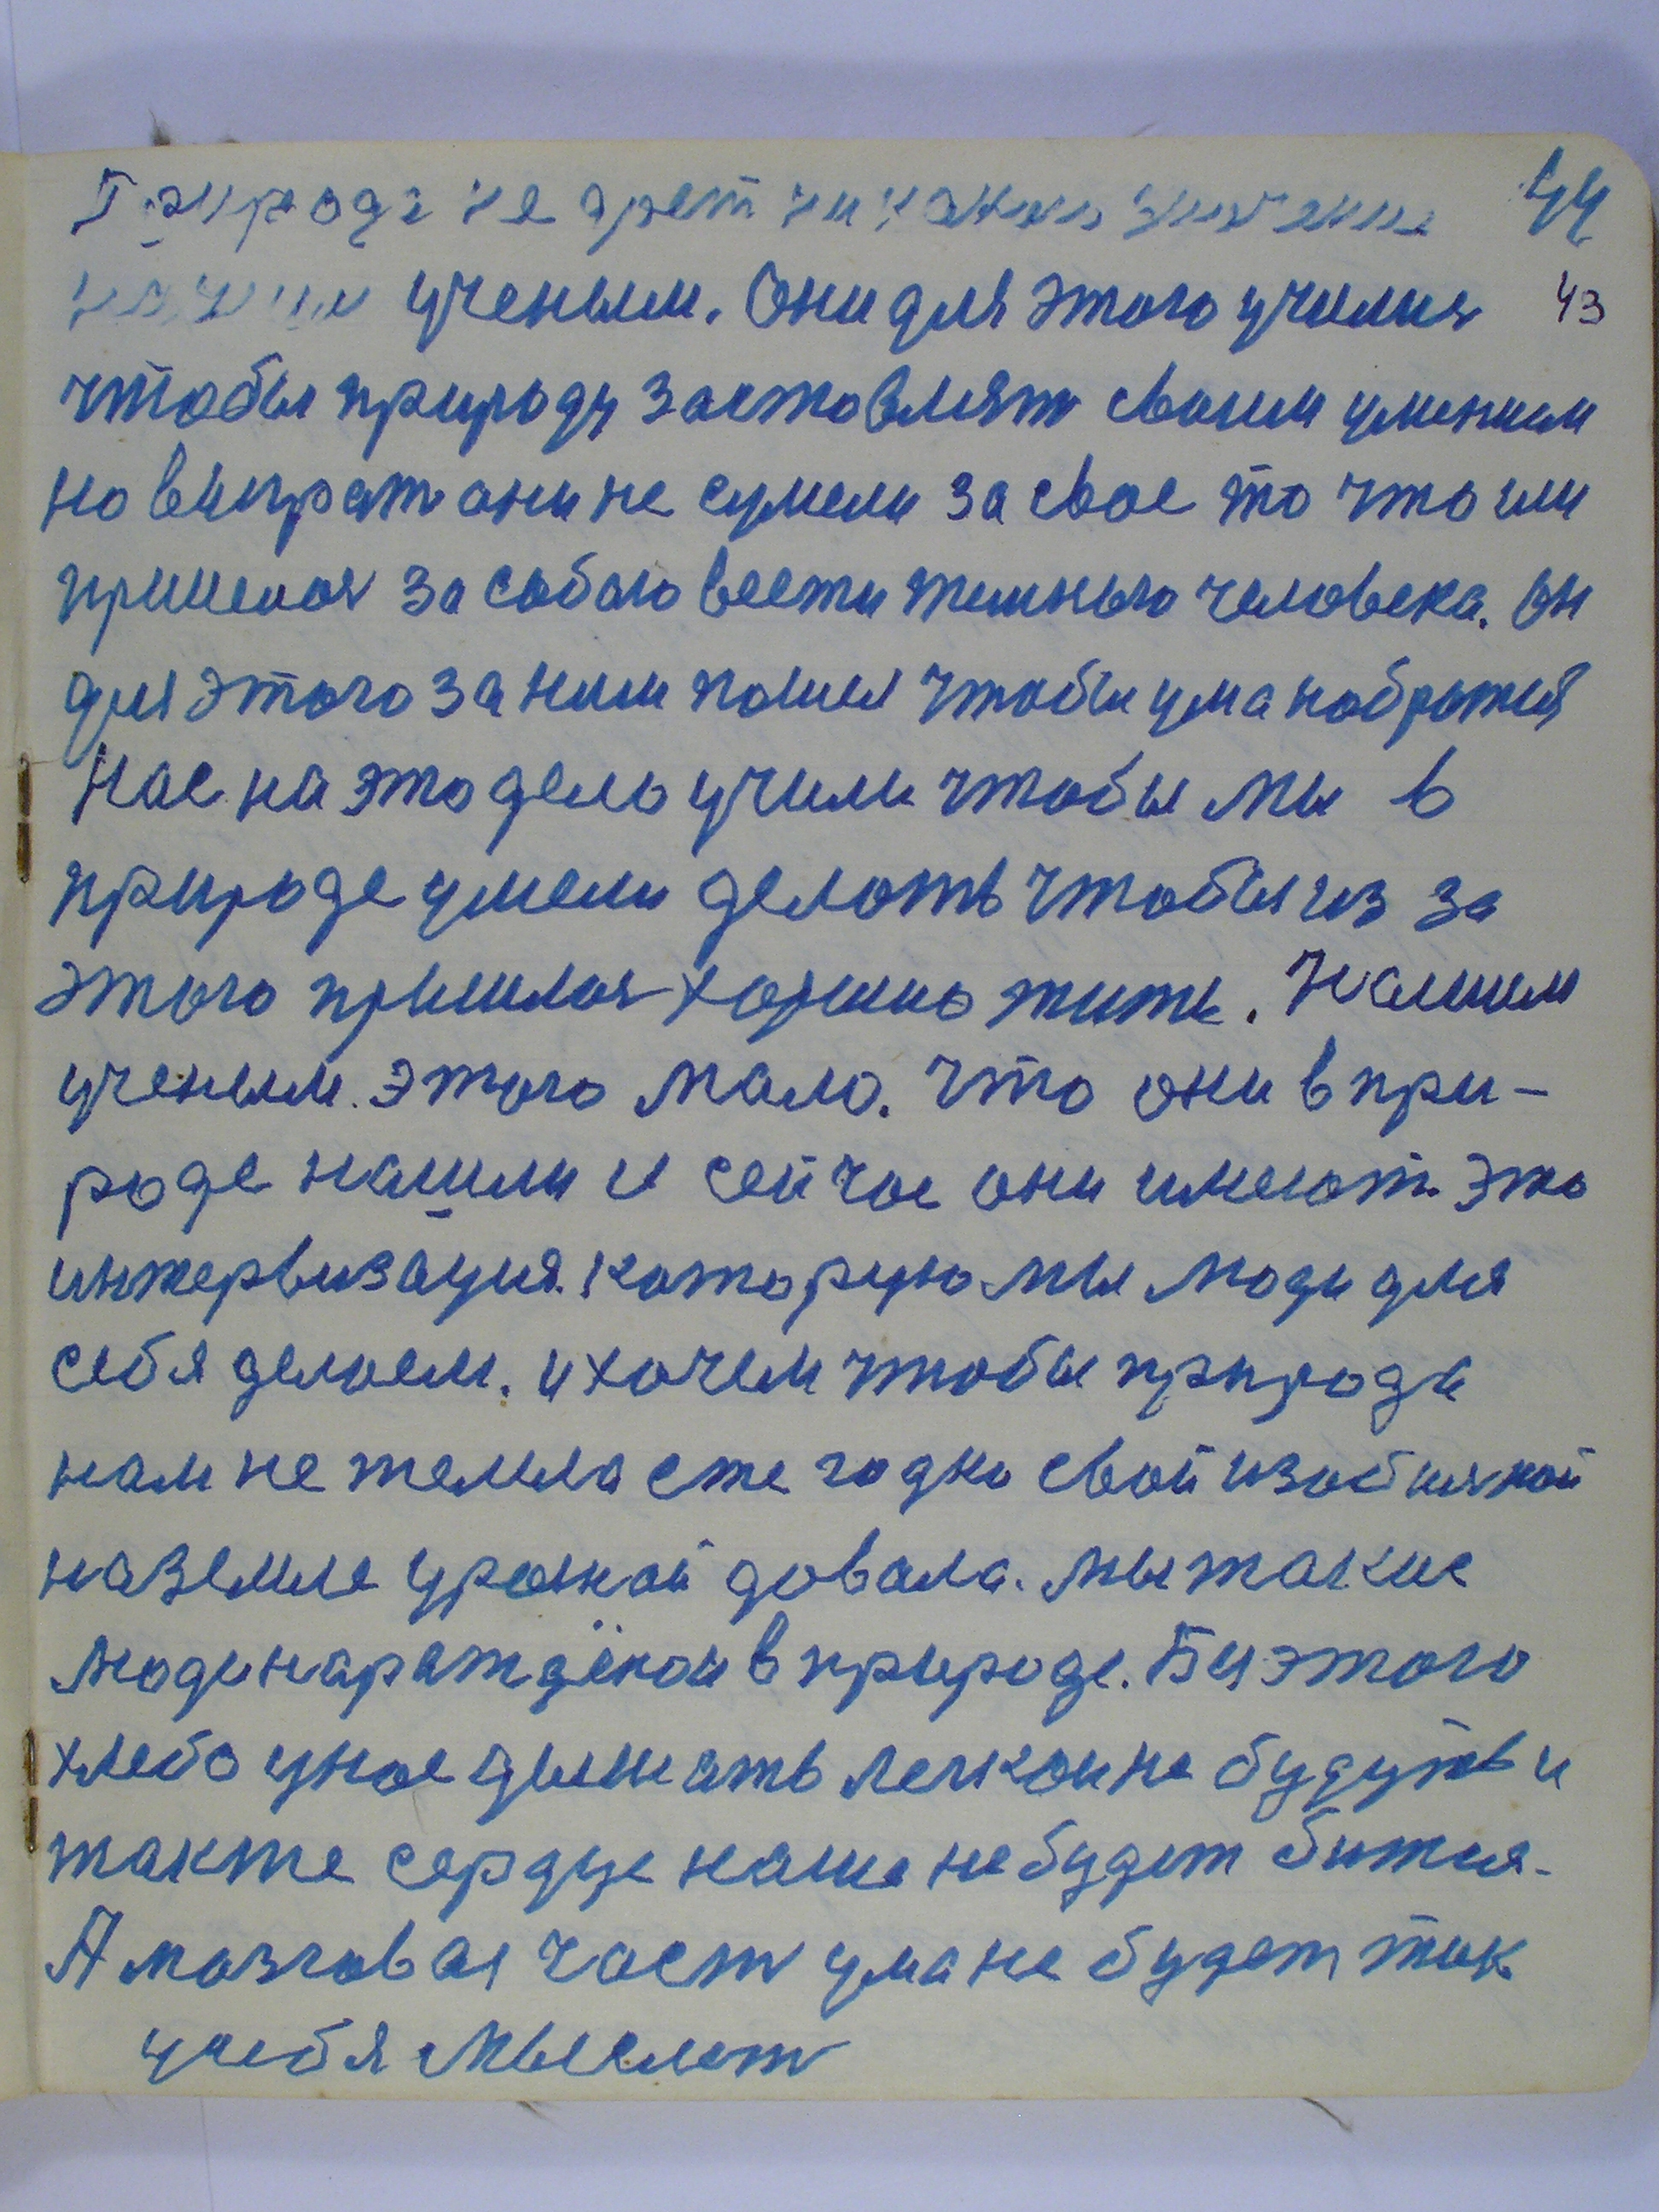 Природа не дает никакие
44
ученым. Они для этого училис
43
чтобы природу заставлят своим умением
но виграт они не сумели за свое то что им
пришлос за собою вести темного человека. Он
для этого за ним пошел чтобы ума набратся
Нас на это дело учили чтобы мы в
природе умели делать чтобы из за
этого пришлос хорошо жить. Нашим
ученым этого мало. что они в при-
роде нашли и сейчас они имеют. это
интервизация. которую мы люди для
себя делаем. и хочем чтобы природа
нам не жалела еже годно свой изобилной
на земле урожай довала. мы такие
люди нараждёнои в природе. Без этого
хлеба у нас дышать легкои не будуть и
также сердце наше не будет битися.
А мозговая част ума не будет так
у себя мыслет